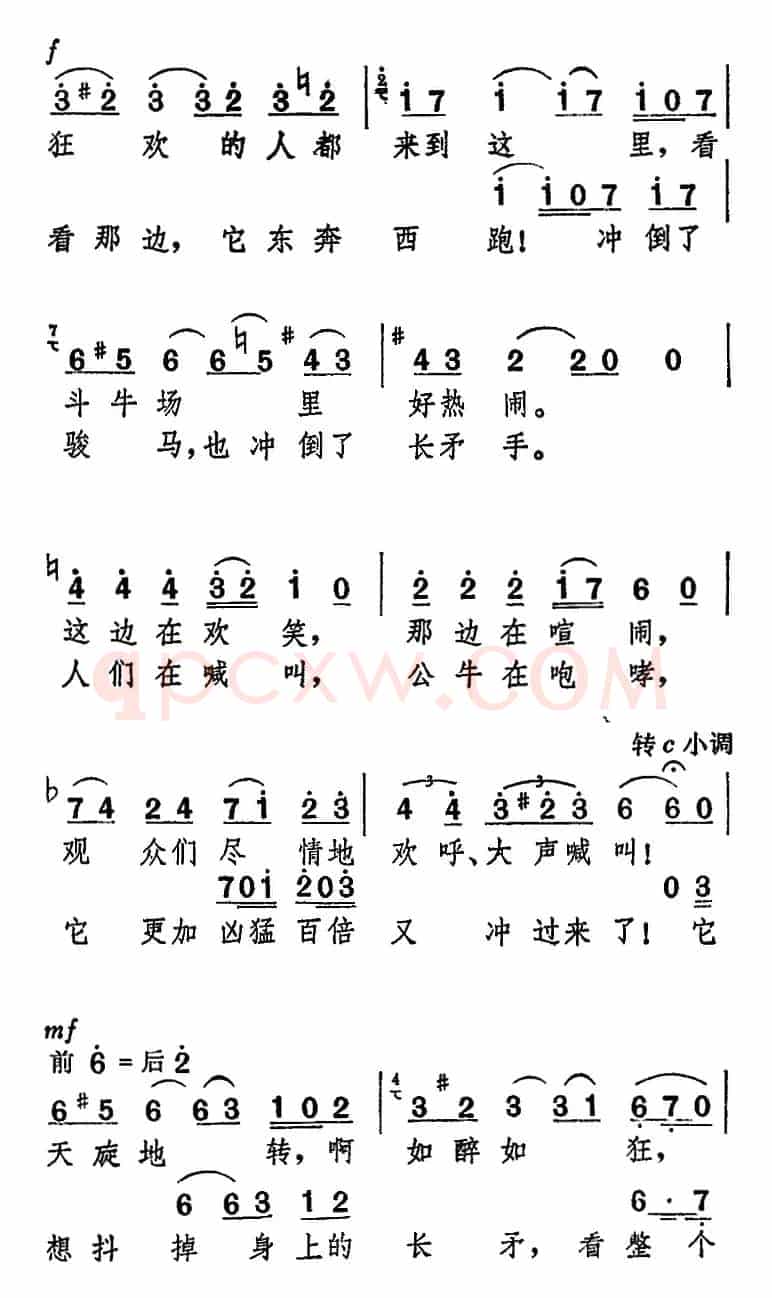 f
3 #2 3 3 2 3 ♮2 | 2 1 7 1 1 7 1 0 7 |
狂 欢 的人都 来到 这 里,看
1 1 0 7 1 7
看那边,它东奔 西 跑! 冲倒了
7 6 #5 6 6 ♮5 #4 3 | #4 3 2 2 0 0 |
斗牛场 里 好热 闹。
骏 马,也冲倒了 长矛 手。
♮4 4 4 3 2 1 0 | 2 2 2 1 7 6 0 |
这边在欢 笑, 那边在喧 闹,
人们在喊 叫, 公牛在咆 哮,
qpcxw.COM
转c小调
♭7 4 2 4 7 1 2 3 | 3 4 4 3 3 #2 3 6 6 0 |
观 众们尽 情地 欢呼、大声喊叫!
7 0 1 2 0 3 0 3
它 更加凶猛百倍 又 冲过来了!它
mf
前 6 = 后 2
6 #5 6 6 3 1 0 2 | 4 3 #2 3 3 1 6 7 0
天旋地 转,啊 如醉如 狂,
6 6 3 1 2 6 · 7
想抖 掉 身上的 长 矛,看整个